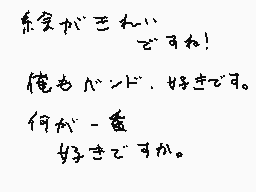 絵がきれい
ですね!
俺もバンド、好きです。
何が一番
好きですか。